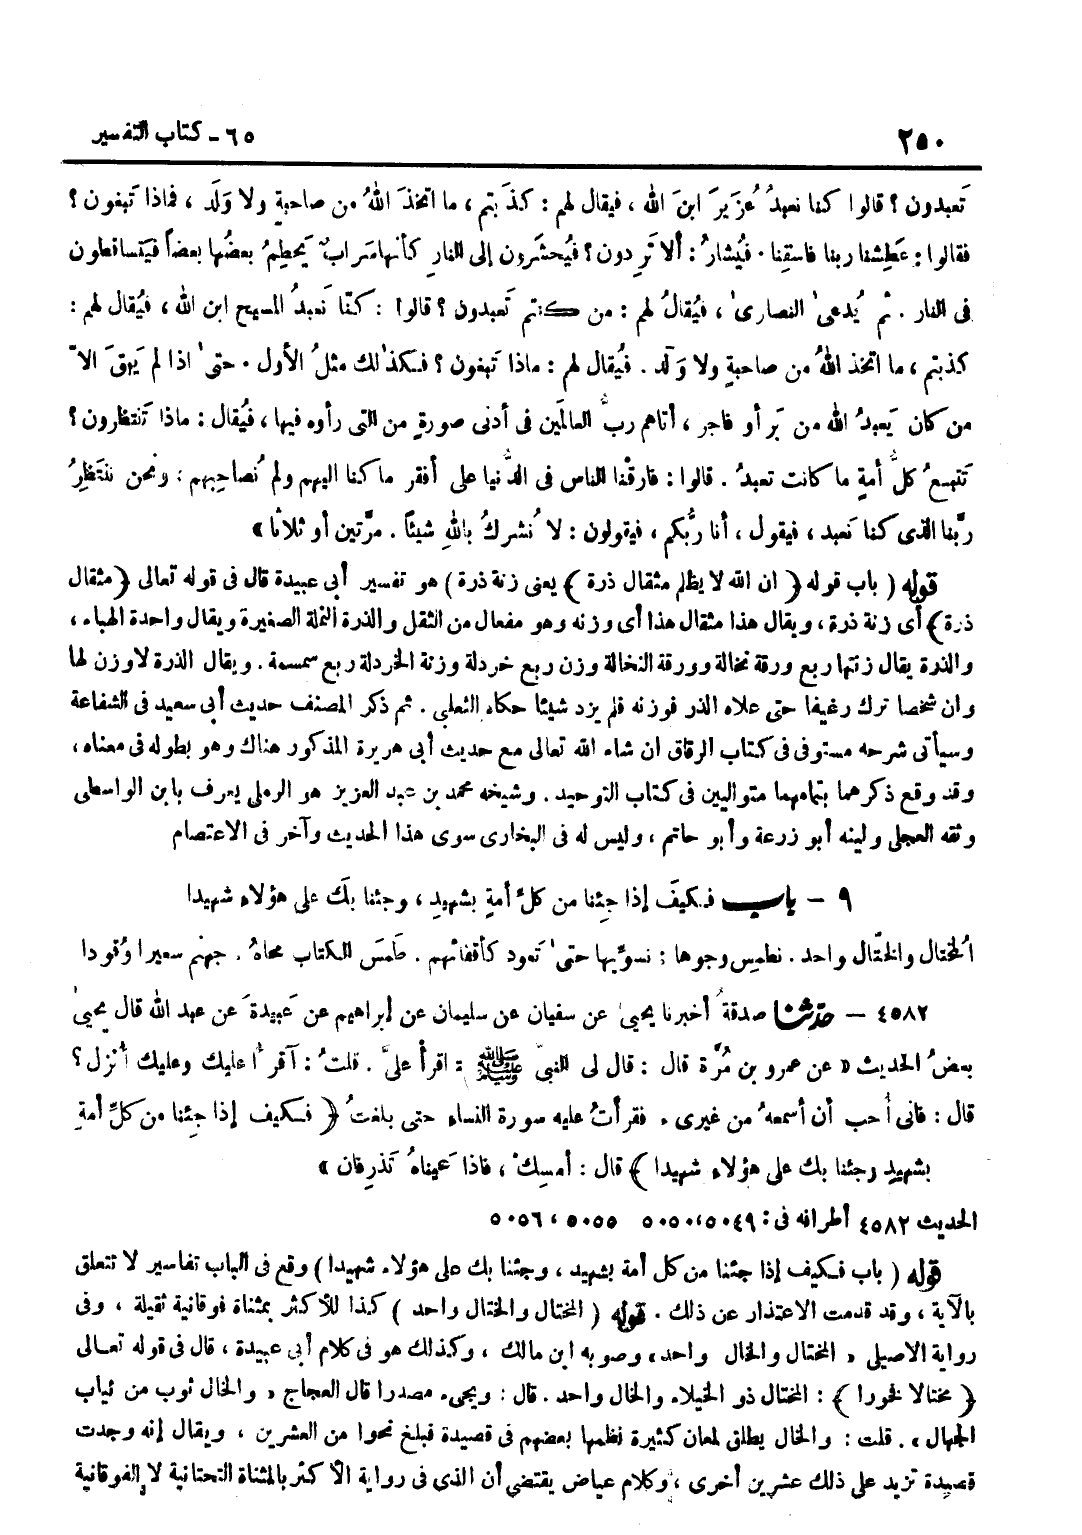 ٢٥٠ ٦٥ - كتاب التفسير
تَعبدون ؟ قالوا كنا نعبدُ عُزَيرَ ابنَ الله ، فيقال لهم : كذَبتم ، ما اتخذَ اللهُ من صاحبةٍ ولا وَلَد ، فماذا تَبغون ؟
فقالوا : عَطِشنا ربنا فاسقِنا . فيُشارُ : ألا تَرِدون ؟ فيُحشَرون إلى النارِ كأنها سَرابٌ يَحطِمُ بعضُها بعضاً فيَتساقطون
فى النار . ثم يُدعىٰ النصارىٰ ، فيُقالُ لهم : من كنتم تَعبدون ؟ قالوا : كنّا نَعبدُ المسيح ابن الله ، فيُقال لهم :
كذبتم ، ما اتخذ اللهُ من صاحبةٍ ولا وَلَد . فيُقال لهم : ماذا تَبغون ؟ فكذٰلك مثلُ الأول . حتىٰ اذا لم يَبقَ الاّ
من كان يَعبدُ الله من بَر أو فاجر ، أتاهم ربُّ العالَمين فى أدنى صورةٍ من التى رأوه فيها ، فيُقال : ماذا تَنتظرون ؟
تَتبعُ كلُّ أمةٍ ما كانت تعبدُ . قالوا : فارقْنا الناس فى الدُّنيا على أفقرِ ما كنا اليهم ولم نُصاحِبهم ; ونحن ننتَظِرُ
ربَّنا الذى كنا نَعبد ، فيقول ، أنا ربُّكم ، فيقولون : لا نُشركُ باللهِ شيئاً . مرَّتين أو ثلاثا »
قوله ( باب قوله ﴿ ان الله لا يظلم مثقال ذرة ﴾ يعنى زنة ذرة ) هو تفسير أبى عبيدة قال فى قوله تعالى ﴿ مثقال
ذرة ﴾ أى زنة ذرة ، ويقال هذا مثقال هذا أى وزنه وهو مفعال من الثقل والذرة النملة الصغيرة ويقال واحدة الهباء ،
والذرة يقال زنتها ربع ورقة نخالة وورقة النخالة وزن ربع خردلة وزنة الخردلة ربع سمسمة . ويقال الذرة لا وزن لها
وان شخصا ترك رغيفا حتى علاه الذر فوزنه فلم يزد شيئا حكاه الثعلبى . ثم ذكر المصنف حديث أبى سعيد فى الشفاعة
وسيأتى شرحه مستوفى فى كتاب الرقاق ان شاء الله تعالى مع حديث أبى هريرة المذكور هناك وهو بطوله فى معناه ،
وقد وقع ذكرهما بتمامهما متواليين فى كتاب التوحيد . وشيخه محمد بن عبد العزيز هو الرملى يعرف بابن الواسطى
وثقه العجلى ولينه أبو زرعة وأبو حاتم ، وليس له فى البخارى سوى هذا الحديث وآخر فى الاعتصام
٩ - باب فكيفَ إذا جِئنا من كلِّ أمةٍ بشهيدٍ ، وجئنا بكَ على هؤلاءِ شهيدا
المُختال والخّتال واحد . نطمِس وجوها : نسوِّيها حتىٰ تَعود كأقفائهم . طَمَسَ الكتاب محاهُ . جهنم سعيرا وُقودا
٤٥٨٢ - حدّثنا صدقةُ أخبرنا يحيىٰ عن سفيان عن سليمان عن إبراهيم عن عَبيدةَ عن عبد الله قال يحيىٰ
بعضُ الحديث « عن عمرو بن مُرَّة قال : قال لى النبىّ ﷺ : اقرأْ علىَّ . قلتُ : آقرأُ عليك وعليك أُنزل ؟
قال : فانى أُحب أن أسمعهُ من غيرى . فقرأتُ عليه سورة النساء حتى بلغتُ ﴿ فكيف إذا جِئنا من كلِّ أمةٍ
بشهيدٍ وجئنا بك على هؤلاءِ شهيدا ﴾ قال : أمسِكْ ، فاذا عَيناهُ تَذرِفان »
الحديث ٤٥٨٢ أطرافه فى : ٥٠٤٩ ، ٥٠٥٠ ٥٠٥٥ ، ٥٠٥٦
قوله ( باب فكيف إذا جئنا من كل أمة بشهيد ، وجئنا بك على هؤلاء شهيدا ) وقع فى الباب تفاسير لا تتعلق
بالآية ، وقد قدمت الاعتذار عن ذلك . قوله ( المختال والختال واحد ) كذا للأكثر بمثناة فوقانية ثقيلة ، وفى
رواية الاصيلى « المختال والخال واحد » وصوبه ابن مالك ، وكذلك هو فى كلام أبى عبيدة ، قال فى قوله تعالى
﴿ مختالا فخورا ﴾ : المختال ذو الخيلاء والخال واحد . قال : ويجىء مصدرا قال العجاج « والخال ثوب من ثياب
الجهال » . قلت : والخال يطلق لمعان كثيرة نظمها بعضهم فى قصيدة فبلغ نحوا من العشرين ، ويقال إنه وجدت
قصيدة تزيد على ذلك عشرين أخرى ، وكلام عياض يقتضى أن الذى فى رواية الأكثر بالمثناة التحتانية لا الفوقانية